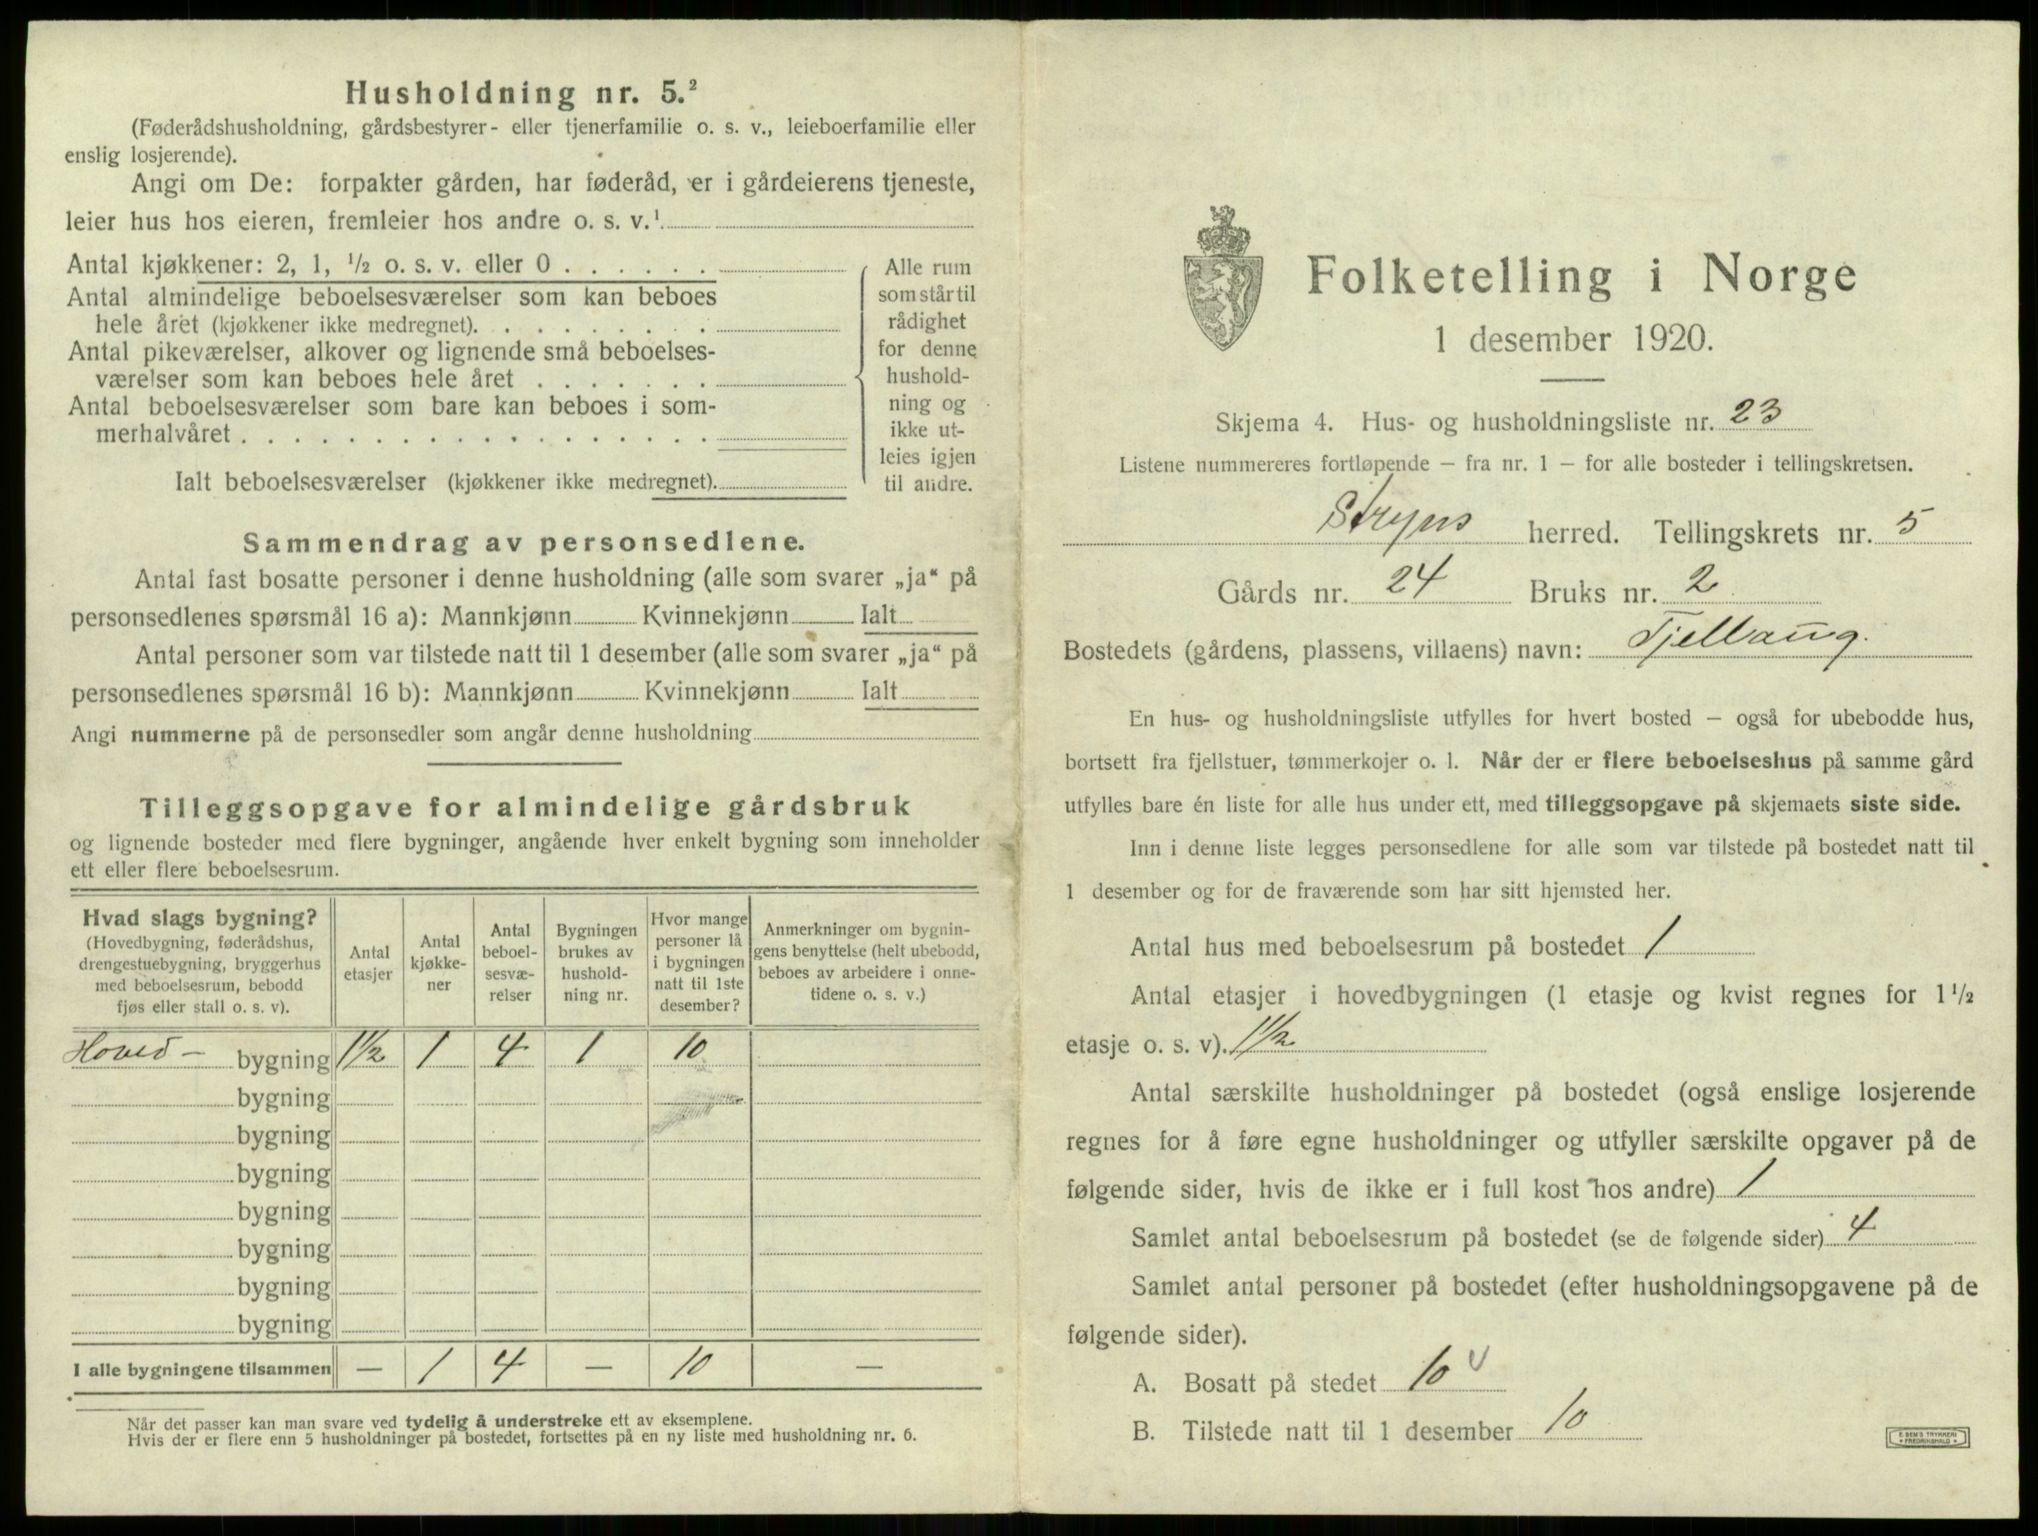 Husholdning nr. 5.²
(Føderådshusholdning, gårdsbestyrer- eller tjenerfamilie o. s. v., leieboerfamilie eller
enslig losjerende).
Angi om De: forpakter gården, har føderåd, er i gårdeierens tjeneste,
leier hus hos eieren, fremleier hos andre o. s. v.¹
Antal kjøkkener: 2, 1, ½ o. s. v. eller 0 . . . . . .
Antal almindelige beboelsesværelser som kan beboes
hele året (kjøkkener ikke medregnet). . . . . . . . .
Antal pikeværelser, alkover og lignende små beboelses-
værelser som kan beboes hele året . . . . . . .
Antal beboelsesværelser som bare kan beboes i som-
merhalvåret . . . . . . . . . . . . . . . . . .
Ialt beboelsesværelser (kjøkkener ikke medregnet).
Alle rum
som står til
rådighet
for denne
hushold-
ning og
ikke ut-
leies igjen
til andre.
Sammendrag av personsedlene.
Antal fast bosatte personer i denne husholdning (alle som svarer „ja“ på
personsedlenes spørsmål 16 a): Mannkjønn Kvinnekjønn Ialt
Antal personer som var tilstede natt til 1 desember (alle som svarer „ja“ på
personsedlenes spørsmål 16 b): Mannkjønn Kvinnekjønn Ialt
Angi nummerne på de personsedler som angår denne husholdning
Tilleggsopgave for almindelige gårdsbruk
og lignende bosteder med flere bygninger, angående hver enkelt bygning som inneholder
ett eller flere beboelsesrum.
Hvad slags bygning?
(Hovedbygning, føderådshus,
drengestuebygning, bryggerhus
med beboelsesrum, bebodd
fjøs eller stall o. s. v).
Antal
etasjer
Antal
kjøkke-
ner
Antal
beboel-
sesvæ-
relser
Bygningen
brukes av
hushold-
ning nr.
Hvor mange
personer lå
i bygningen
natt til 1ste
desember?
Anmerkninger om bygnin-
gens benyttelse (helt ubebodd,
beboes av arbeidere i onne-
tidene o. s. v.)
Hoved- bygning 1½ 1 4 1 10
bygning
bygning
bygning
bygning
bygning
bygning
bygning
I alle bygningene tilsammen — 1 4 — 10 —
Når det passer kan man svare ved tydelig å understreke ett av eksemplene.
Hvis der er flere enn 5 husholdninger på bostedet, fortsettes på en ny liste med husholdning nr. 6.
Folketelling i Norge
1 desember 1920.
Skjema 4. Hus- og husholdningsliste nr. 23
Listene nummereres fortløpende — fra nr. 1 — for alle bosteder i tellingskretsen.
Stryns herred. Tellingskrets nr. 5
Gårds nr. 24 Bruks nr. 2
Bostedets (gårdens, plassens, villaens) navn: Tjellaug.
En hus- og husholdningsliste utfylles for hvert bosted — også for ubebodde hus,
bortsett fra fjellstuer, tømmerkojer o. l. Når der er flere beboelseshus på samme gård
utfylles bare én liste for alle hus under ett, med tilleggsopgave på skjemaets siste side.
Inn i denne liste legges personsedlene for alle som var tilstede på bostedet natt til
1 desember og for de fraværende som har sitt hjemsted her.
Antal hus med beboelsesrum på bostedet 1
Antal etasjer i hovedbygningen (1 etasje og kvist regnes for 1½
etasje o. s. v). 1½
Antal særskilte husholdninger på bostedet (også enslige losjerende
regnes for å føre egne husholdninger og utfyller særskilte opgaver på de
følgende sider, hvis de ikke er i full kost hos andre) 1
Samlet antal beboelsesrum på bostedet (se de følgende sider) 4
Samlet antal personer på bostedet (efter husholdningsopgavene på de
følgende sider).
A. Bosatt på stedet 10
B. Tilstede natt til 1 desember 10
E. SEM'S TRYKKERI
FREDRIKSHALD